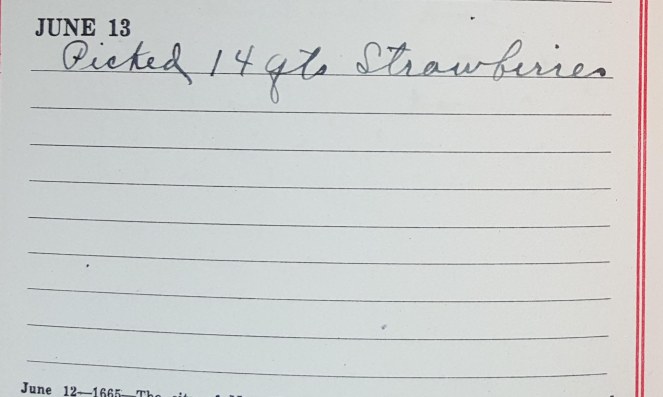 JUNE 13
Picked 14 qts Strawberries
June 12—1665—The city of